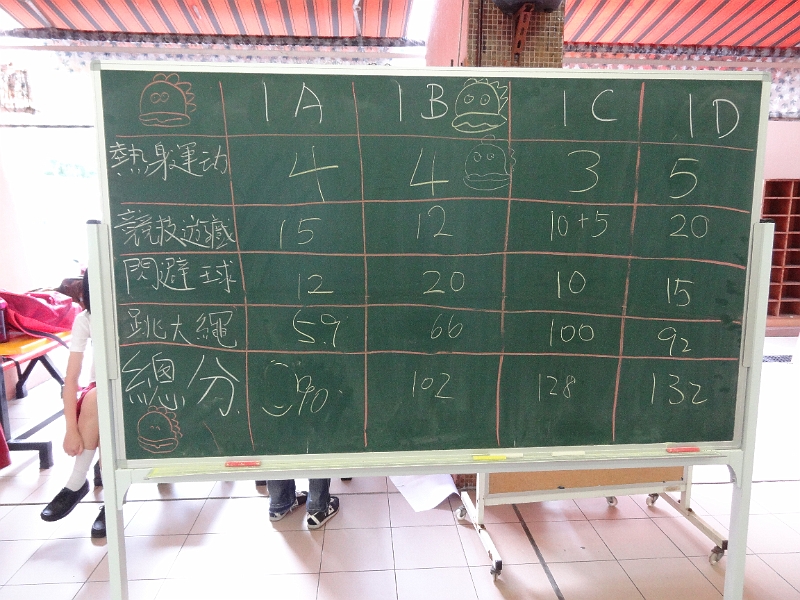 1A 1B 1C 1D
熱身運动 4 4 3 5
競技遊戲 15 12 10+5 20
閃避球 12 20 10 15
跳大繩 59 66 100 92
總分 90 102 128 132